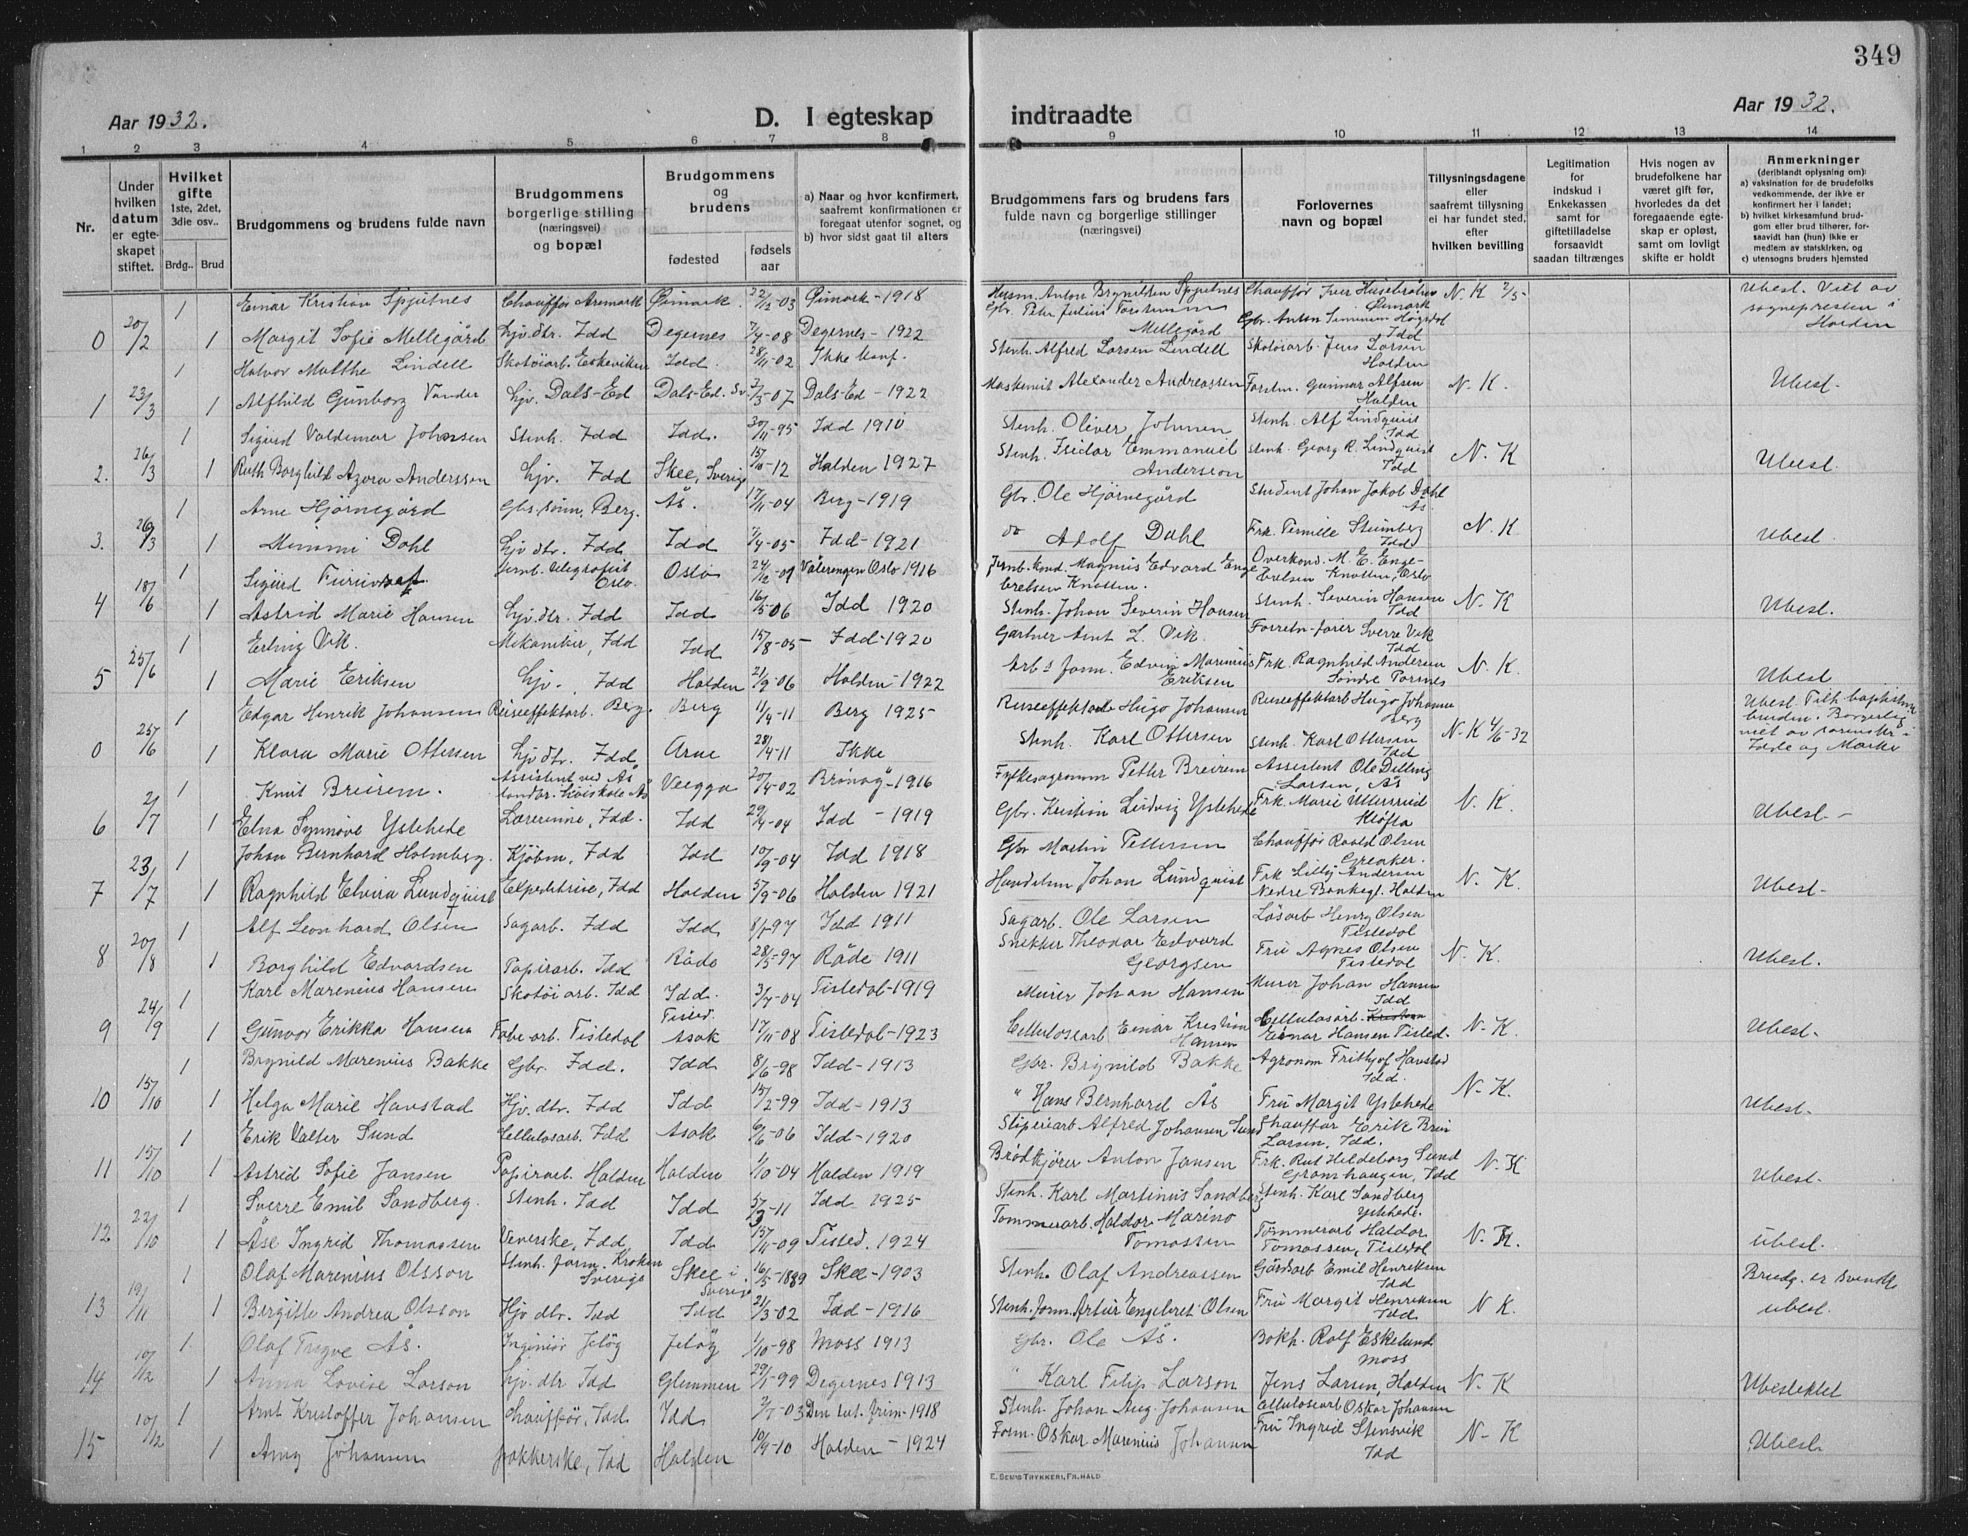 349
Aar 1932.
D. I egteskap indtraadte
Aar 1932.
1 2 3 4 5 6 7 8 9 10 11 12 13 14
Nr.
Under hvilken datum er egteskapet stiftet.
Hvilket gifte 1ste, 2det, 3die osv..
Brdg.. Brud
Brudgommens og brudens fulde navn
Brudgommens borgerlige stilling (næringsvei) og bopæl
Brudgommens og brudens
fødested
fødselsaar
a) Naar og hvor konfirmert, saafremt konfirmationen er foregaat utenfor sognet, og
b) hvor sidst gaat til alters
Brudgommens fars og brudens fars fulde navn og borgerlige stillinger (næringsvei)
Forlovernes navn og bopæl
Tillysningsdagene eller saafremt tillysning ei har fundet sted, efter hvilken bevilling
Legitimation for indskud i Enkekassen samt for giftetilladelse forsaavidt saadan tiltrænges
Hvis nogen av brudefolkene har været gift før, hvorledes da det foregaaende egteskap er opløst, samt om lovligt skifte er holdt
Anmerkninger (deriblandt oplysning om):
a) vaksination for de brudefolks vedkommende, der ikke er konfirmert her i landet;
b) hvilket kirkesamfund brudgom eller brud tilhører, forsaavidt han (hun) ikke er medlem av statskirken, og
c) utensogns bruders hjemsted
1 Einar Kristian Spjutnes Chauffør Aremark Øimark 22/12-03 Øimark-1918 Husm. Anton Brynildsen Spjutnes Chauffør Øimark N.K 2/5- Ubest. Viet av sognepresten i Halden
0 20/2 1 Margit Sofie Mellegård Hjv. dtr. Idd Degernes 7/4-08 Degernes-1922 Gbr. Peter Julius Torstensen Mellegård Gbr. Anton Idd
1 Halvor Malthe Lindell Skotøiarb. Eskeviken Idd. 28/11-02 Ikke konf. Stenh. Alfred Larsen Lindell Skotøiarb. Jens Larsen Halden
1 23/3 1 Alfhild Gunborg Vander Hjv. Dals-Ed Dals-Ed. Sv. 2/3-07 Dals-Ed-1922 Maskinist Alexander Andreassen Forstm. Gunnar Alfsen Halden N.K. Ubest.
1 Sigurd Valdemar Johnsen Stenh. Idd Idd. 20/11-95 Idd 1910 Stenh. Oliver Johnsen Stenh. Alf Lindquist Idd
2. 26/3 1 Ruth Borghild Azora Andersson Hjv. Idd Skee, Sverige 15/10-12 Halden 1927 Stenh. Isidor Emmanuel Andersson Stenh. Georg R. Lindquist Idd N.K Ubest.
1 Arne Hjørnegård Gbs. sønn, Berg. Ås. 17/11-04 Berg-1919 Gbr. Ole Hjørnegård Student Johan Jakob Dahl Ås
3. 26/3 1 Mimmi Dahl Hjv dtr. Idd Idd 7/4-05 Idd-1921 do Adolf Dahl Frk. Pernille Stumberg Idd N.K Ubest.
1 Sigurd Jernb. telegrafist Oslo. Oslo 24/12-09 Vålerengen Oslo 1916 Jernb. kond. Magnus Edvard Engebretsen Knatten. Overkond. M. E. Engebretsen Knatten, Oslo
4 18/6 1 Astrid Marie Hansen Hjv. dtr. Idd Idd 16/5-06 Idd 1920 Stenh. Johan Severin Hansen Stenh. Severin Hansen Idd N.K Ubest.
1 Erling Vik. Mekaniker, Idd Idd 15/8-05 Idd-1920 Gartner Arnt L. Vik. Forretn.fører Sverre Vik Idd
5 25/6 1 Marie Eriksen Hjv-, Idd Halden 21/9-06 Halden-1922 Arb s form. Edvin Marinius Eriksen Frk. Ragnhild Andersen Søndre Tornes N.K. Ubest
1 Edgar Henrik Johansen Reiseeffektarb. Berg. Berg 11/9-11 Berg 1925 Reiseeffektarb Hugo Johansen Reiseeffektarb Hugo Johansen Berg Ubest. Tilh. baptistene bruden. Borgerlig viet av sorenskr. i Idde og Marke
0 25/6 1 Klara Marie Ottersen Hjv dtr. Idd Arne 28/4-11 Ikke Stenh. Karl Ottersen Stenh. Karl Ottersen Idd N-K 4/6-32
1 Knut Breirem. Assistent ved Ås landbr. høiskole Ås Veggja 20/4-02 Brønøy-1916 Fylkesagronom Petter Breirem Assistent Ole Delling Larsen, Ås
6 2/7 1 Elna Synnøve Ystehede Lærerinne, Idd. Idd 29/4-04 Idd-1919 Gbr. Kristian Ludvig Ystehede Frk. Marie Ullersrud Kløfta N.K. Ubest-
1 Johan Bernhard Holmberg. Kjøbm, Idd Idd 10/9-04 Idd 1918 Gbr Martin Pettersen Chauffør Roald Olsen Greaker.
7 23/7 1 Ragnhild Elvira Lundquist Expeditrise, Idd Halden 5/9-06 Halden 1921 Handelsm Johan Lundquist Frk Lilly Andersen Nedre Bankegt. Halden N.K. Ubest-
1 Alf Leonhard Olsen Sagarb. Idd Idd 8/7-97 Idd 1911 Sagarb. Ole Larsen Løsarb Henry Olsen Tistedal
8 20/8 1 Borghild Edvardsen Papirarb. Idd Råde 28/5-97 Råde 1911 Snekker Theodor Edvard Georgsen Fru Agnes Olsen Tistedal N.K. Ubest.
1 Karl Marenius Hansen Skotøiarb. Idd Idd. Tisted. 3/7-04 Tistedal-1919 Murer Johan Hansen Murer Johan Hansen Idd
9 24/9 1 Gunvor Erikka Hansen Fabr-arb. Tistedal Asak 17/11-08 Tistedal-1923 Cellulosearb Einar Kristian Hansen Cellulosarb. Kristian Einar Hansen Tisted. N-K. Ubest-
1 Brynild Marenius Bakke Gbr. Idd. Idd 8/6-98 Idd-1913 Gbr. Brynild Bakke Agronom Frithjof Havstad Idd.
10 15/10 1 Helga Marie Havstad Hjv. dtr. Idd Idd 15/2-99 Idd-1913 " Hans Bernhard Ås Fru Margit Ystehede N-K. Ubest.
1 Erik Valter Sund Cellulosarb. Idd Asak 6/6-06 Idd-1920 Sliperiarb Alfred Johansen Sund Chauffør Erik Brin Larsen, Idd.
11 15/10 1 Astrid Sofie Jansen Papirarb. Halden Halden 1/10-04 Halden 1919 Brødkjører Anton Jansen Frk. Rut Heldeborg Sund Granshaugen, Idd N.K Ubest.
1 Sverre Emil Sandberg. Stenh. Idd Idd 5/3-11 Idd 1925 Stenh. Karl Martinius Sandberg Stenh. Karl Sandberg Ystehede.
12 22/10 1 Åse Ingrid Thomassen Veverske, Idd Idd 15/11-09 Tisted. 1924 Tommerarb. Haldor Marino Tomassen Tømmerarb Haldor Tomassen, Tistedal N.K. ubest.
1 Olaf Marenius Olsson Stenh. form. Kroken Sverige Skee i Sverige 16/5-1889 Skee-1903 Stenh. Olaf Andreassen Gårdsarb Emil Henriksen Idd Brudg. er svensk
13 19/11 1 Birgitte Andrea Olsson Hjv dtr. Idd Idd 21/3-02 Idd-1916 Stenh. form. Artur Engebret Olsen Fru Margit Henriksen Idd N K. ubest.
1 Olaf Trygve Ås. Ingeniør Jeløy Jeløy 1/10-98 Moss 1913 Gbr. Ole Ås. Bokh. Rolf Eskelund Moss
14 10/12 1 Anna Lovise Larson Hjv. dtr Idd Glemmen 29/1-99 Degernes 1913 " Karl Filip Larson Jens Larsen, Halden N.K Ubeslektet
1 Arnt Kristoffer Johansen Chauffør, Idd. Idd 2/7-03 Den lut. frim-1918 Stenh. Johan Aug. Johansen Cellulosarb Oskar Johansen
15 10/12 1 Amy Johansen Pakkerske, Idd Halden 19/9-10 Halden-1924 Form. Oskar Marenius Johansen Fru Ingrid Stensvik Idd N-K Ubest.
E. SEM'S TRYKKERI, FR.HALD